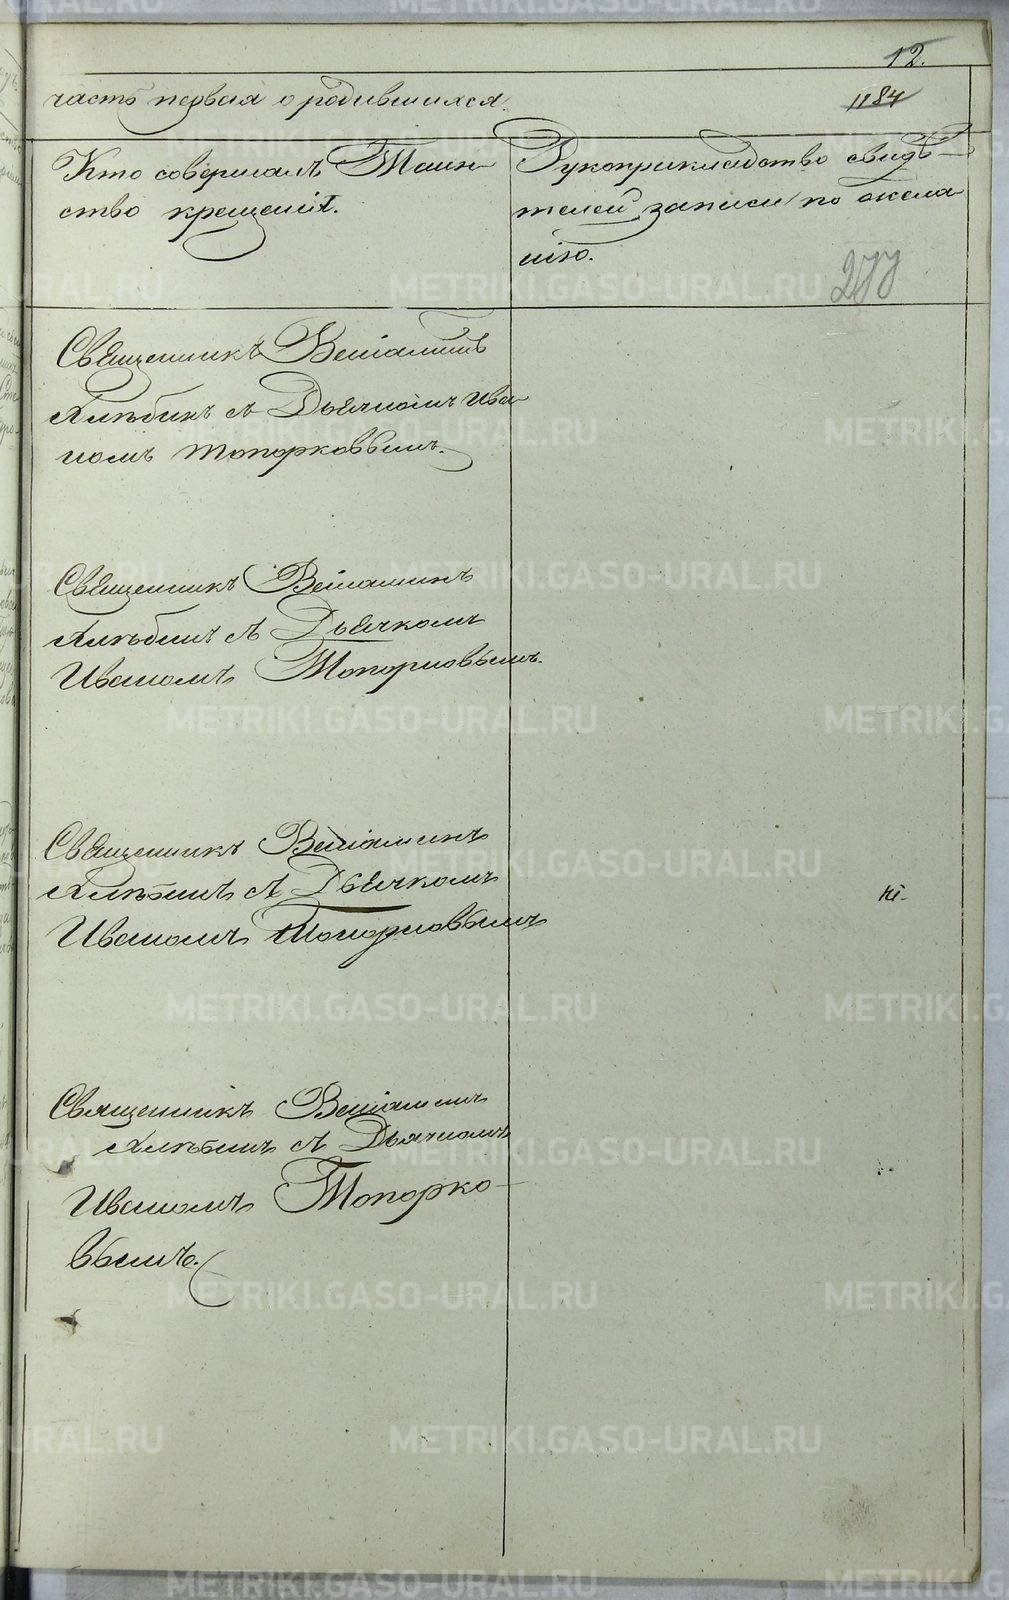 12.
часть первая о родившихся.
1184
Кто совершалъ Таин-
ство крещенія.
Рукоприкладство свидѣ-
телей записи по жела
нію.
277
Священникъ Веніаминъ
Алѣбинъ съ Дьячкомъ Ива-
номъ Топорковымъ.
Священникъ Веніаминъ
Алѣбинъ съ Дьячкомъ
Иваномъ Топорковымъ.
Священникъ Веніаминъ
Алѣбинъ съ Дьячкомъ
Иваномъ Топорковымъ
Священникъ Веніаминъ
Алѣбинъ съ Дьячкомъ
Иваномъ Топорко-
вымъ.
METRIKI.GASO-URAL.RU